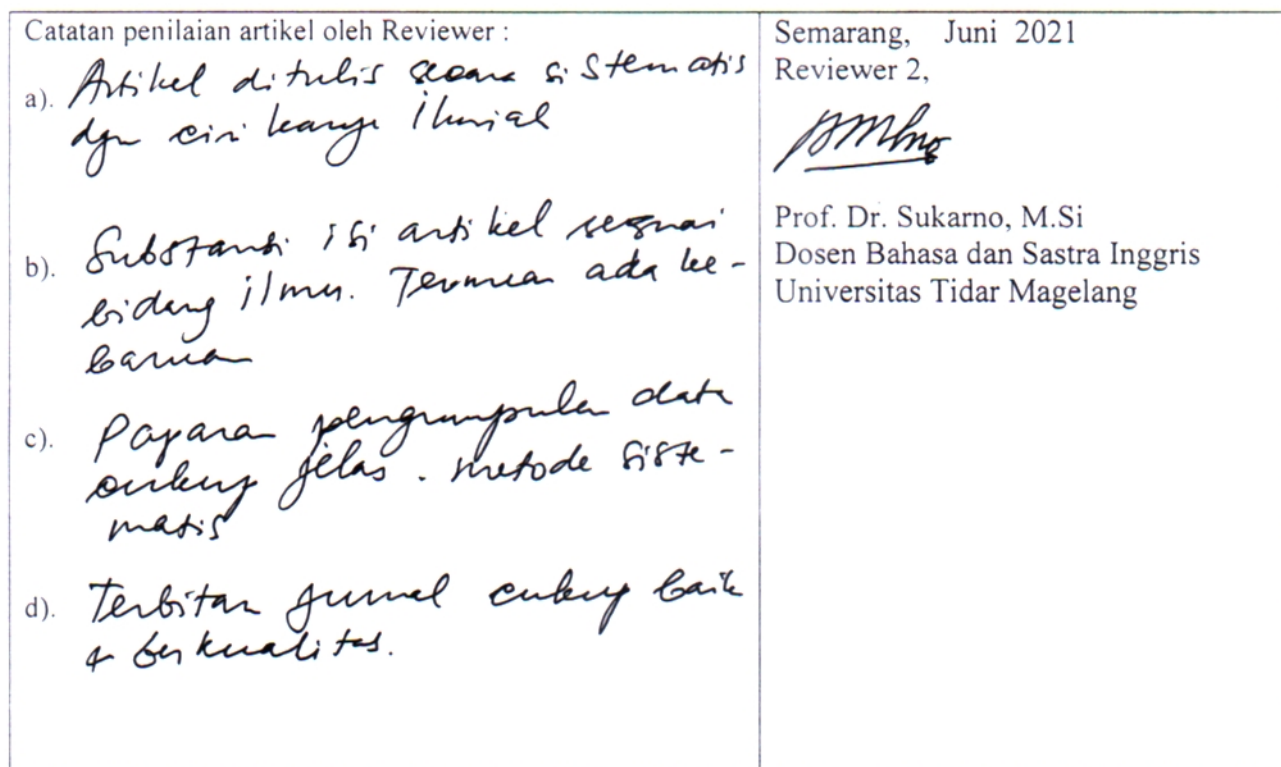 Catatan penilaian artikel oleh Reviewer :
a). Artikel ditulis secara sistematis
dgn ciri karya ilmiah
b). Substansi isi artikel sesuai
bidang ilmu. Temuan ada ke-
baruan
c). Paparan pengumpulan data
cukup jelas. metode siste-
matis
d). Terbitan jurnal cukup baik
& berkualitas.
Semarang, Juni 2021
Reviewer 2,
Prof. Dr. Sukarno, M.Si
Dosen Bahasa dan Sastra Inggris
Universitas Tidar Magelang